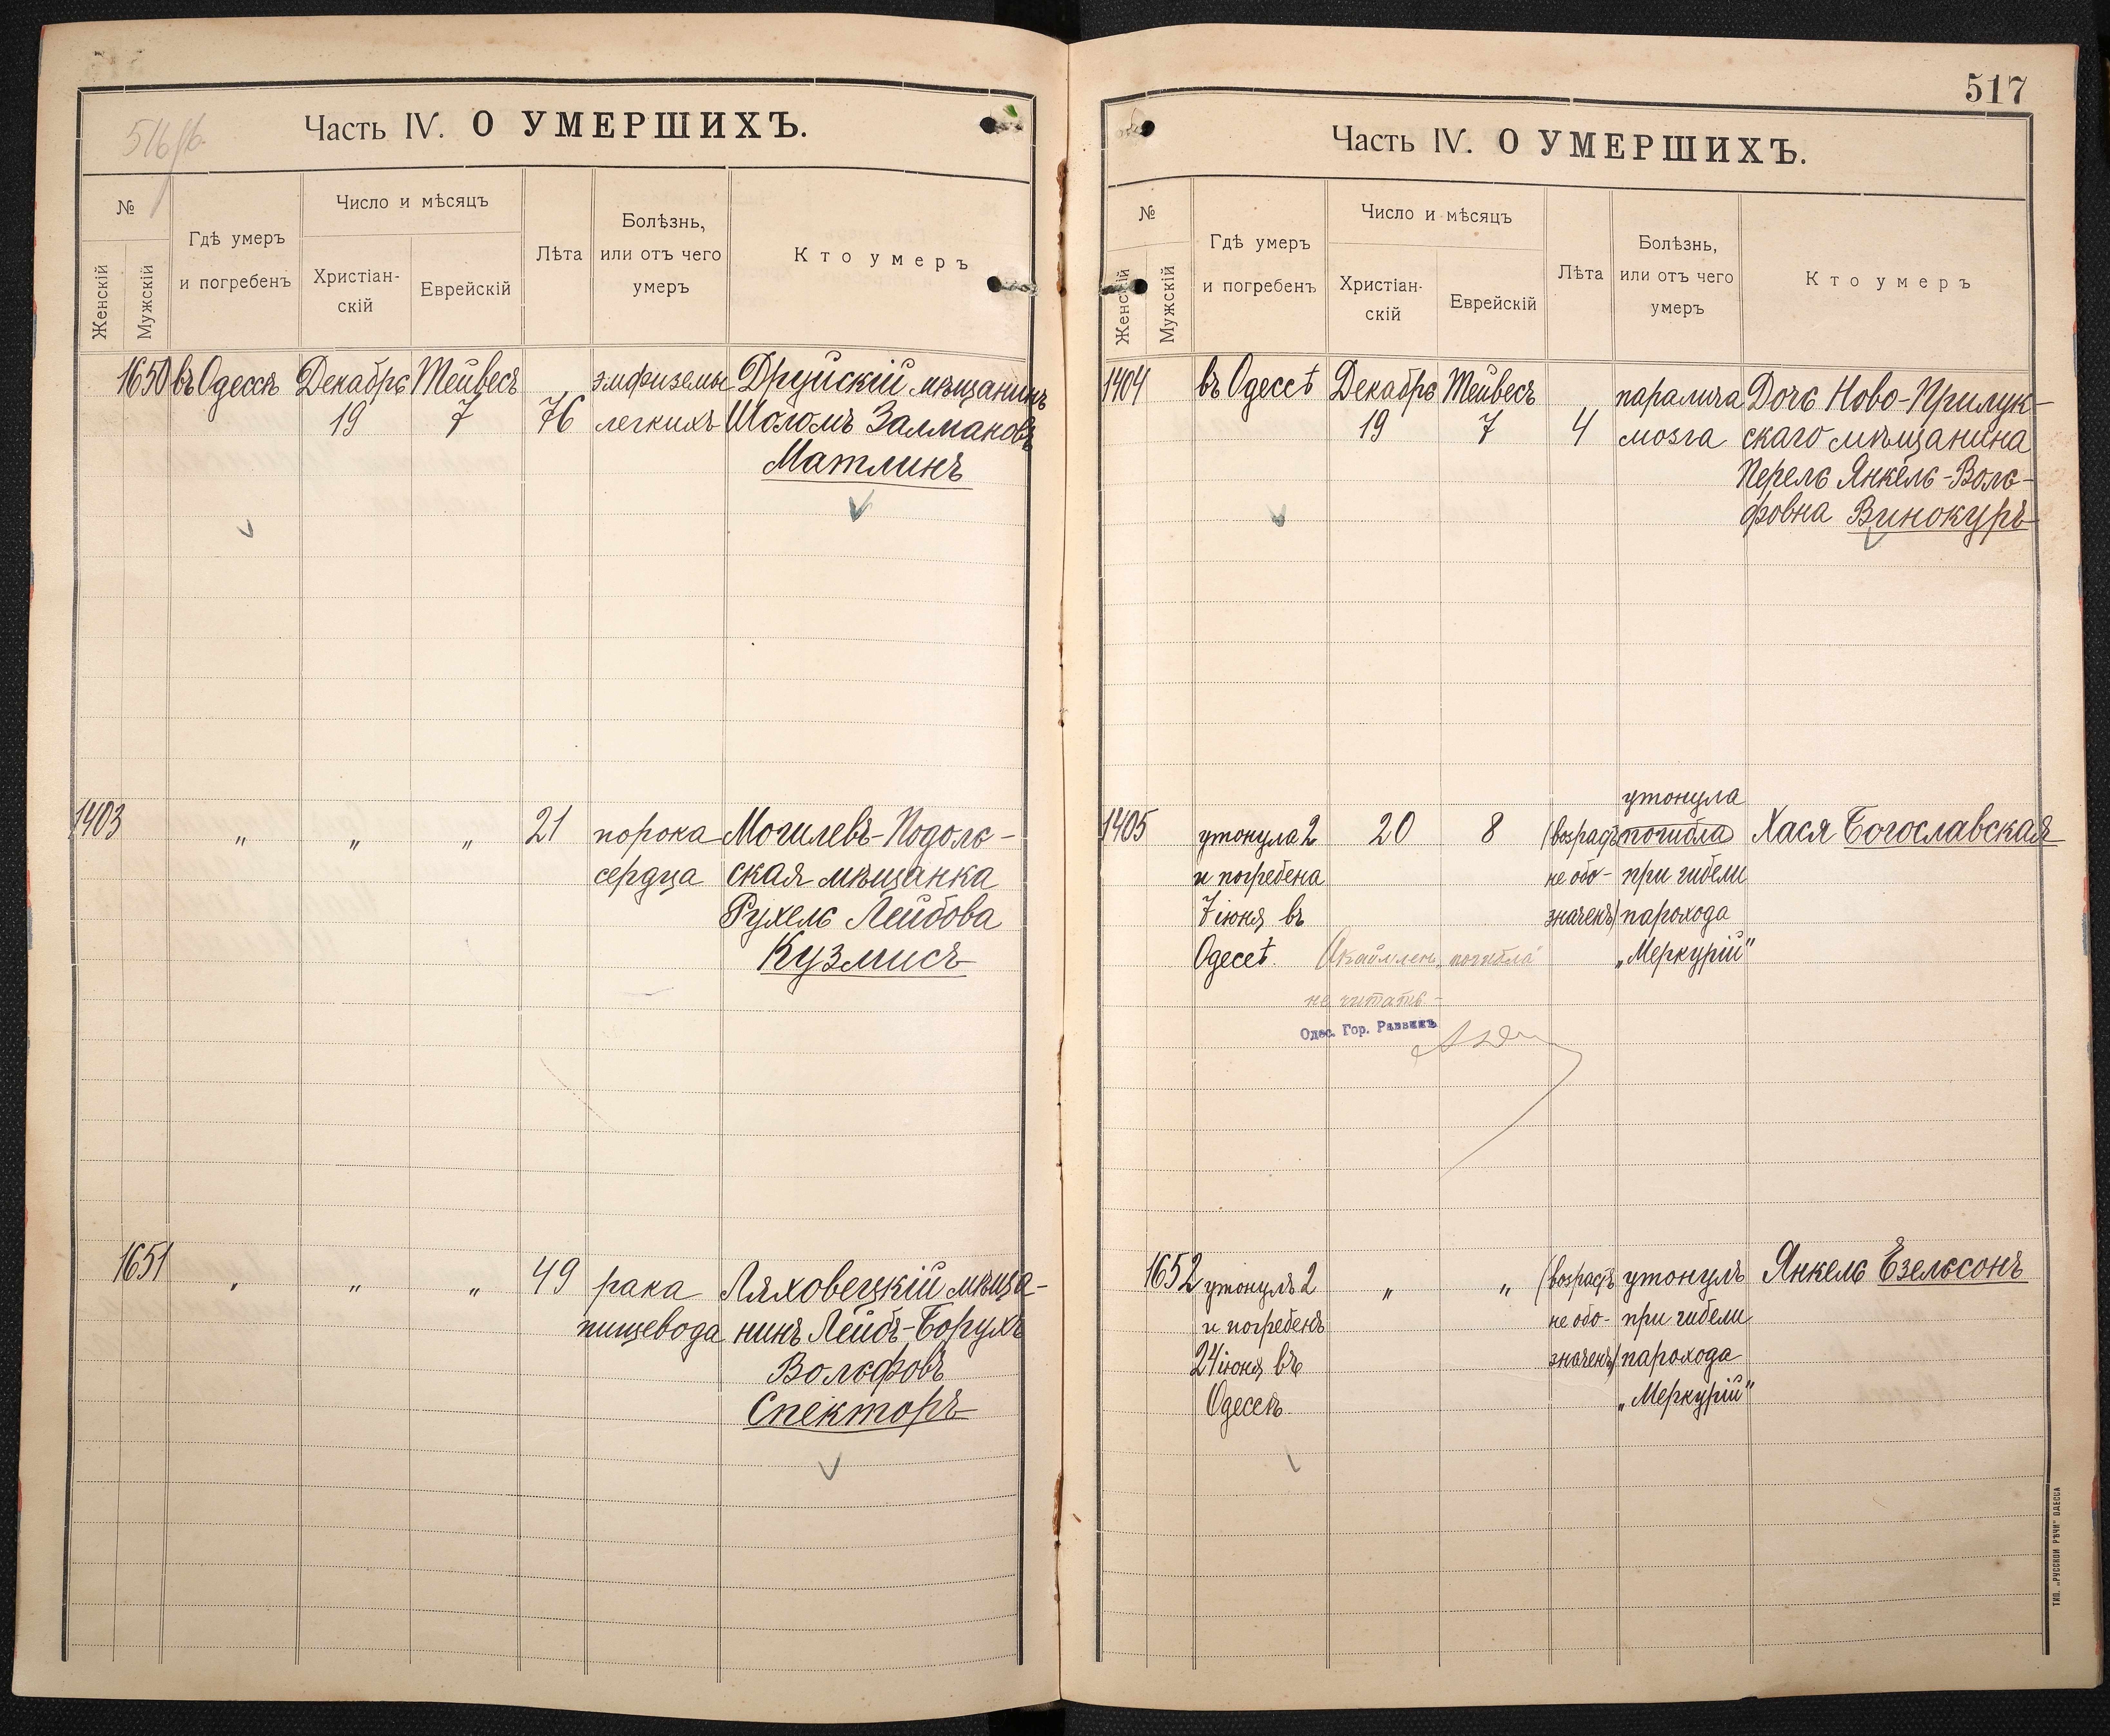 516 об.
Часть IV. О УМЕРШИХЪ.
№
Женскій
Мужскій
Гдѣ умеръ
и погребенъ
Число и мѣсяцъ
Христіан-
скій
Еврейскій
Лѣта
Болѣзнь,
или отъ чего
умеръ
Кто умеръ
1650 въ Одессѣ Декабрь Тейвесъ эмфиземы Друйскій мѣщанинъ
19 7 76 легкихъ Шоломъ Залмановъ
Матлинъ
1403 „ „ „ 21 порока Могилевъ-Подоль-
сердца ская мѣщанка
Рухель Лейбова
Кузмисъ
1651 „ „ „ 49 рака Ляховецкій мѣща-
пищевода нинъ Лейбъ-Борухъ
Вольфовъ
Спекторъ
517
Часть IV. О УМЕРШИХЪ.
№
Женскій
Мужскій
Гдѣ умеръ
и погребенъ
Число и мѣсяцъ
Христіан-
скій
Еврейскій
Лѣта
Болѣзнь,
или отъ чего
умеръ
Кто умеръ
1404 въ Одессѣ Декабрь Тейвесъ паралича Дочь Ново-Прилук-
19 7 4 мозга скаго мѣщанина
Перель Янкель-Воль-
фовна Винокуръ
утонула
1405 утонула 2 20 8 (возрастъ погибла Хася Богославская
и погребена не обо- при гибели
7 іюня въ значенъ) парохода
Одесѣ. погибла „Меркурій“
не читать-
Одес. Гор. Раввинъ
1652 утонулъ 2 „ „ (возрастъ утонулъ Янкель Езельсонъ
и погребенъ не обо- при гибели
24 іюня въ значенъ) парохода
Одессѣ. „Меркурій“
ТИП. „РУССКОЙ РѢЧИ“ ОДЕССА